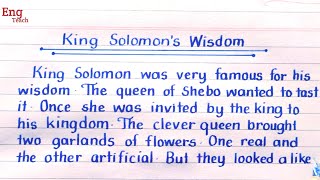 Eng
Teach
King Solomon's Wisdom
King Solomon was very famous for his
wisdom. The queen of Shebo wanted to tast
it. Once she was invited by the king to
his kingdom. The clever queen brought
two garlands of flowers. One real and
the other artificial. But they looked a like